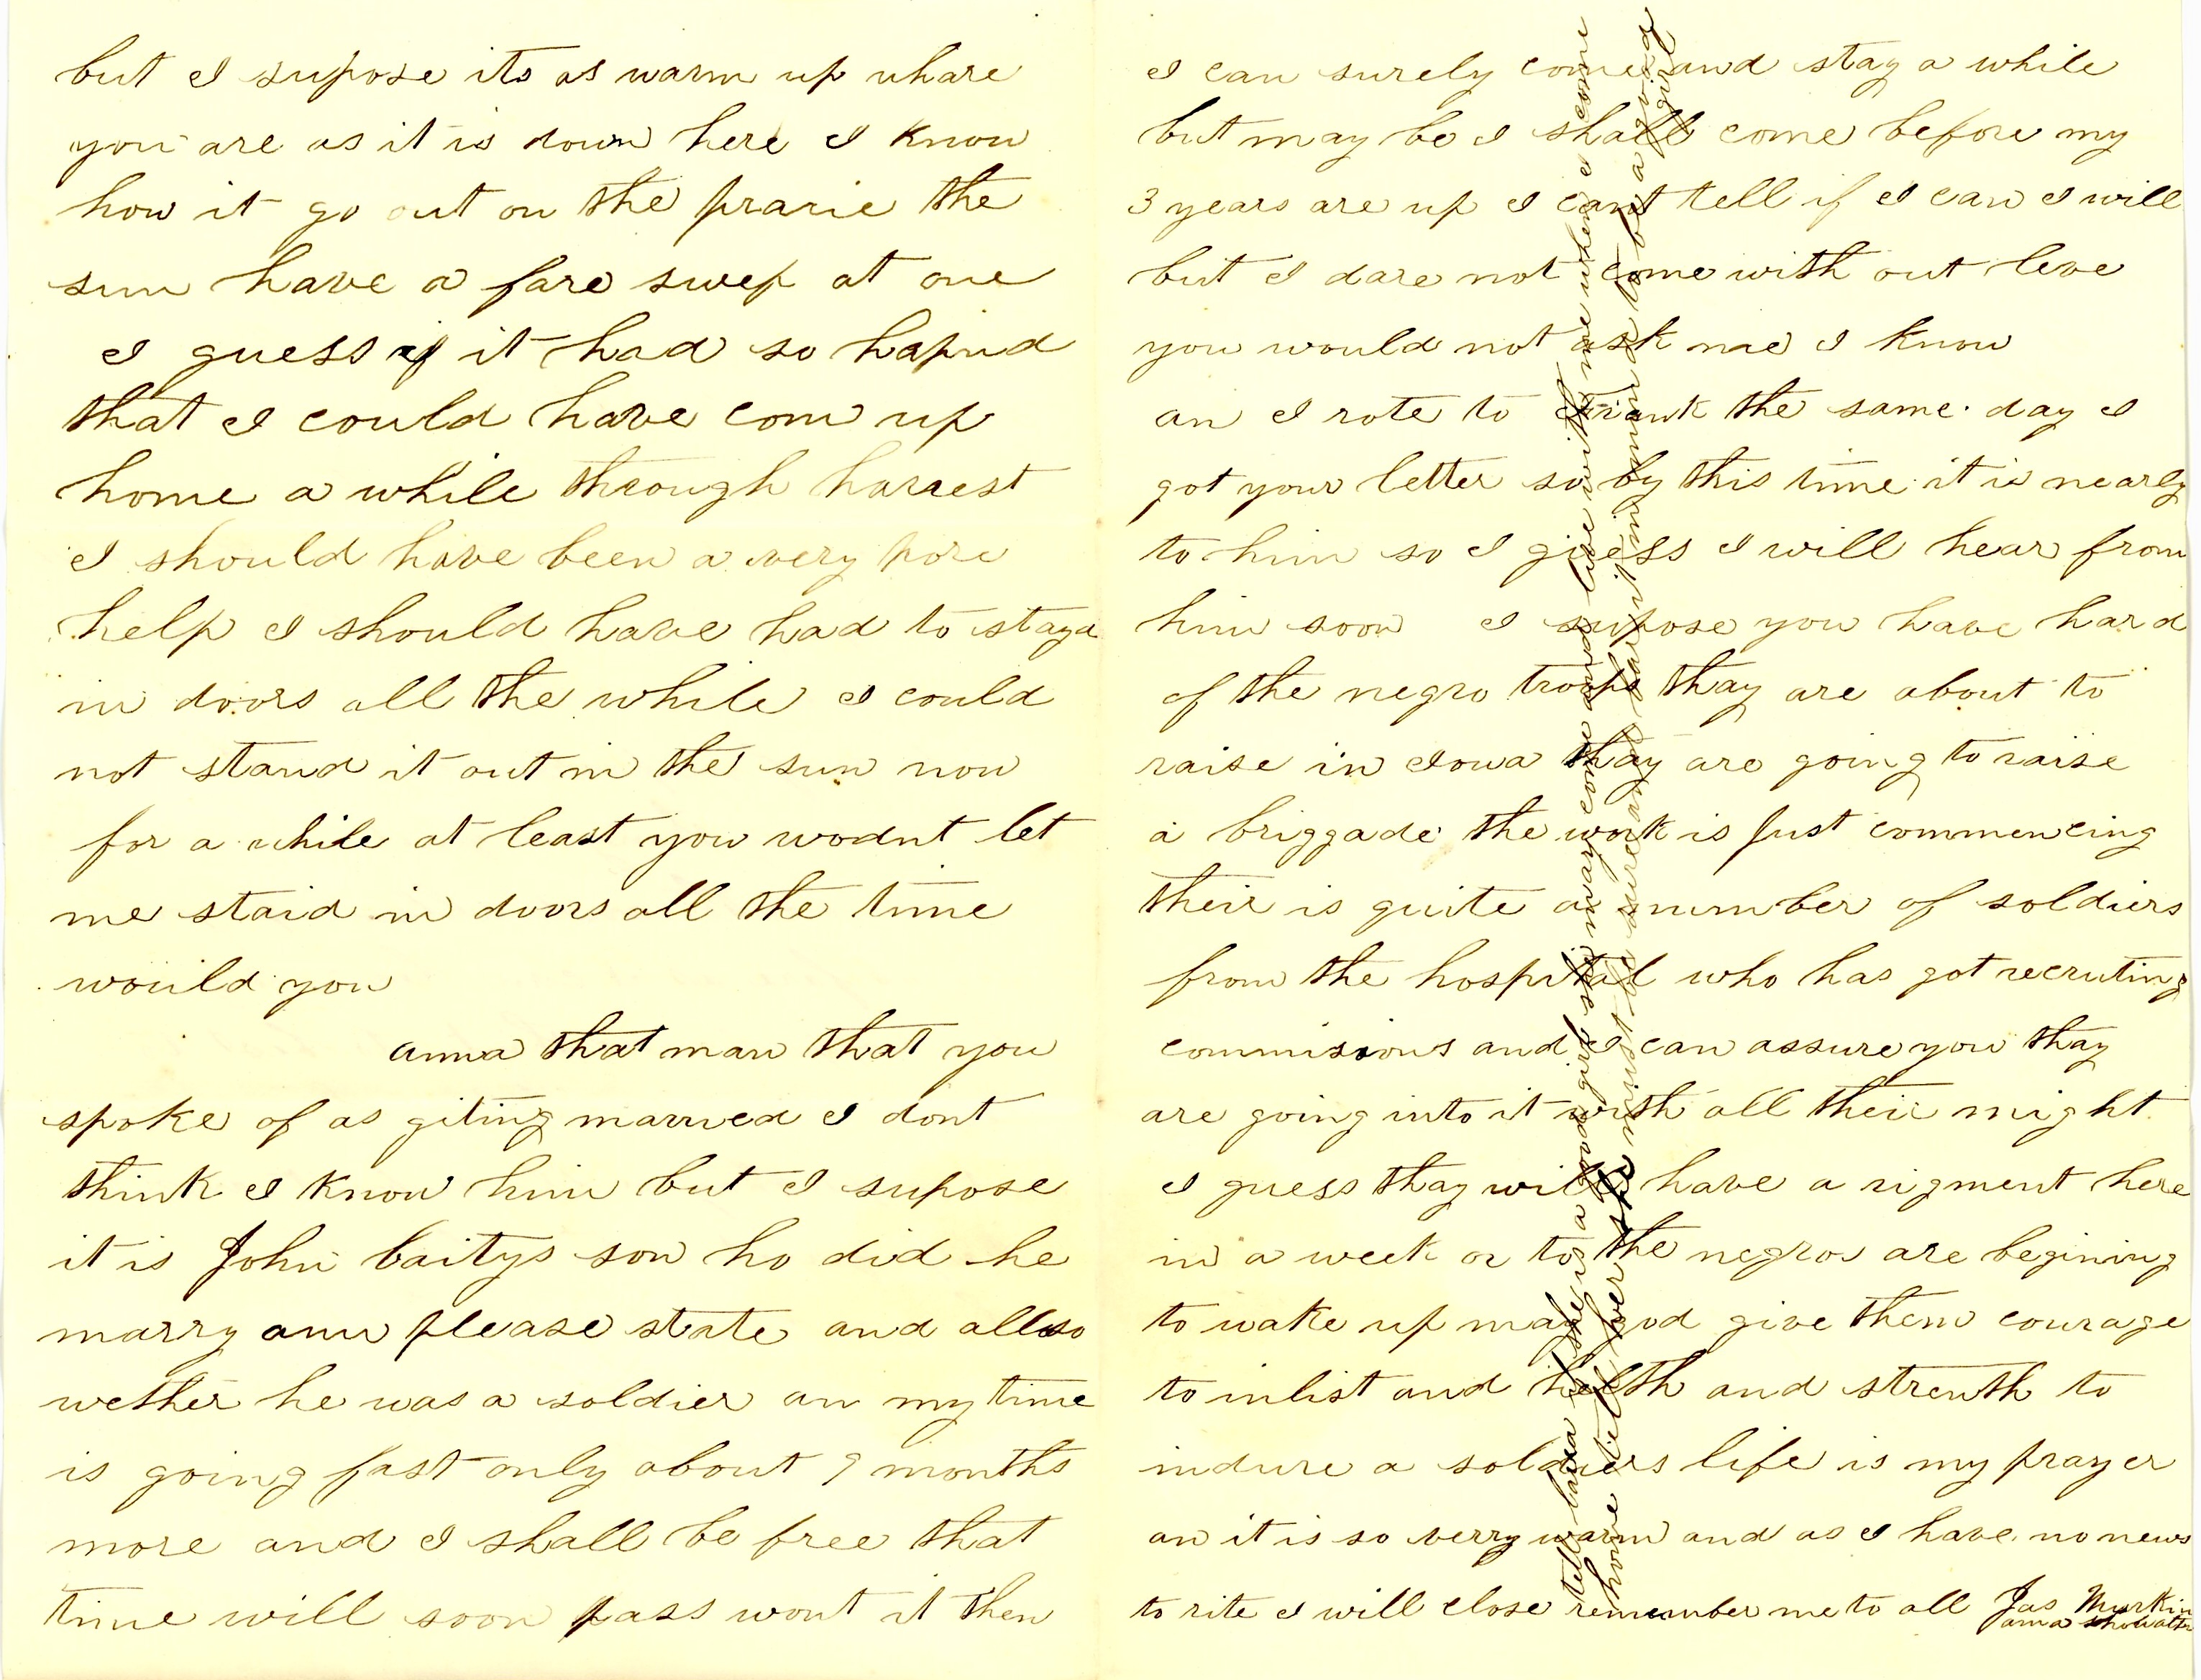 but I supose its as warm up whare
you are as it is down here I know
how it go out on the prarie the
sun have a fare swep at one
I guess if it had so hapnd
that I could have com up
home a while through harrest
I should have been a very pore
help I should have had to stayd
in doors all the while I could
not stand it out in the sun now
for a while at least you wodnt let
me staid in doors all the time
would you
anna that man that you
spoke of as giting married I dont
think I know him but I supose
it is John baitys son ho did he
marry ann please state and allso
wether he was a soldier an my time
is going fast only about 9 months
more and I shall be free that
time will soon pass wont it then
I can surely come and stay a while
but may be I shall come before my
3 years are up I cant tell if I can I will
but I dare not come with out leve
you would not ask me I know
an I rote to Frank the same day I
got your letter so by this time it is nearly
to him so I guess I will hear from
him soon I supose you have hard
of the negro troops thay are about to
raise in Iowa thay are going to raise
a briggade the work is just commencing
their is quite a number of soldiers
from the hospital who has got recruting
commisions and I can assure you thay
are going into it with all their might
I guess thay will have a rigment here
in a week or to the negros are begining
to wake up may god give them courage
to inlist and helth and strenth to
indure a soldiers life is my prayer
an it is so verry warm and as I have no news
to rite I will close remember me to all Jas Murkin
anna Showalter
tell laura if she is a good girl she may come and live with me when I come
home tell her she must be sure and bear it in mind to be a good
girl